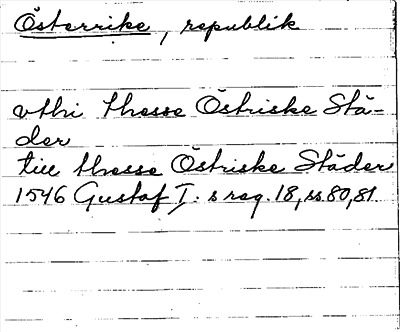 Österrike, republik
vthi thesse Östriske Stä-
der
till thesse Östriske Städer
1546 Gustaf I: s reg. 18, ss. 80, 81.